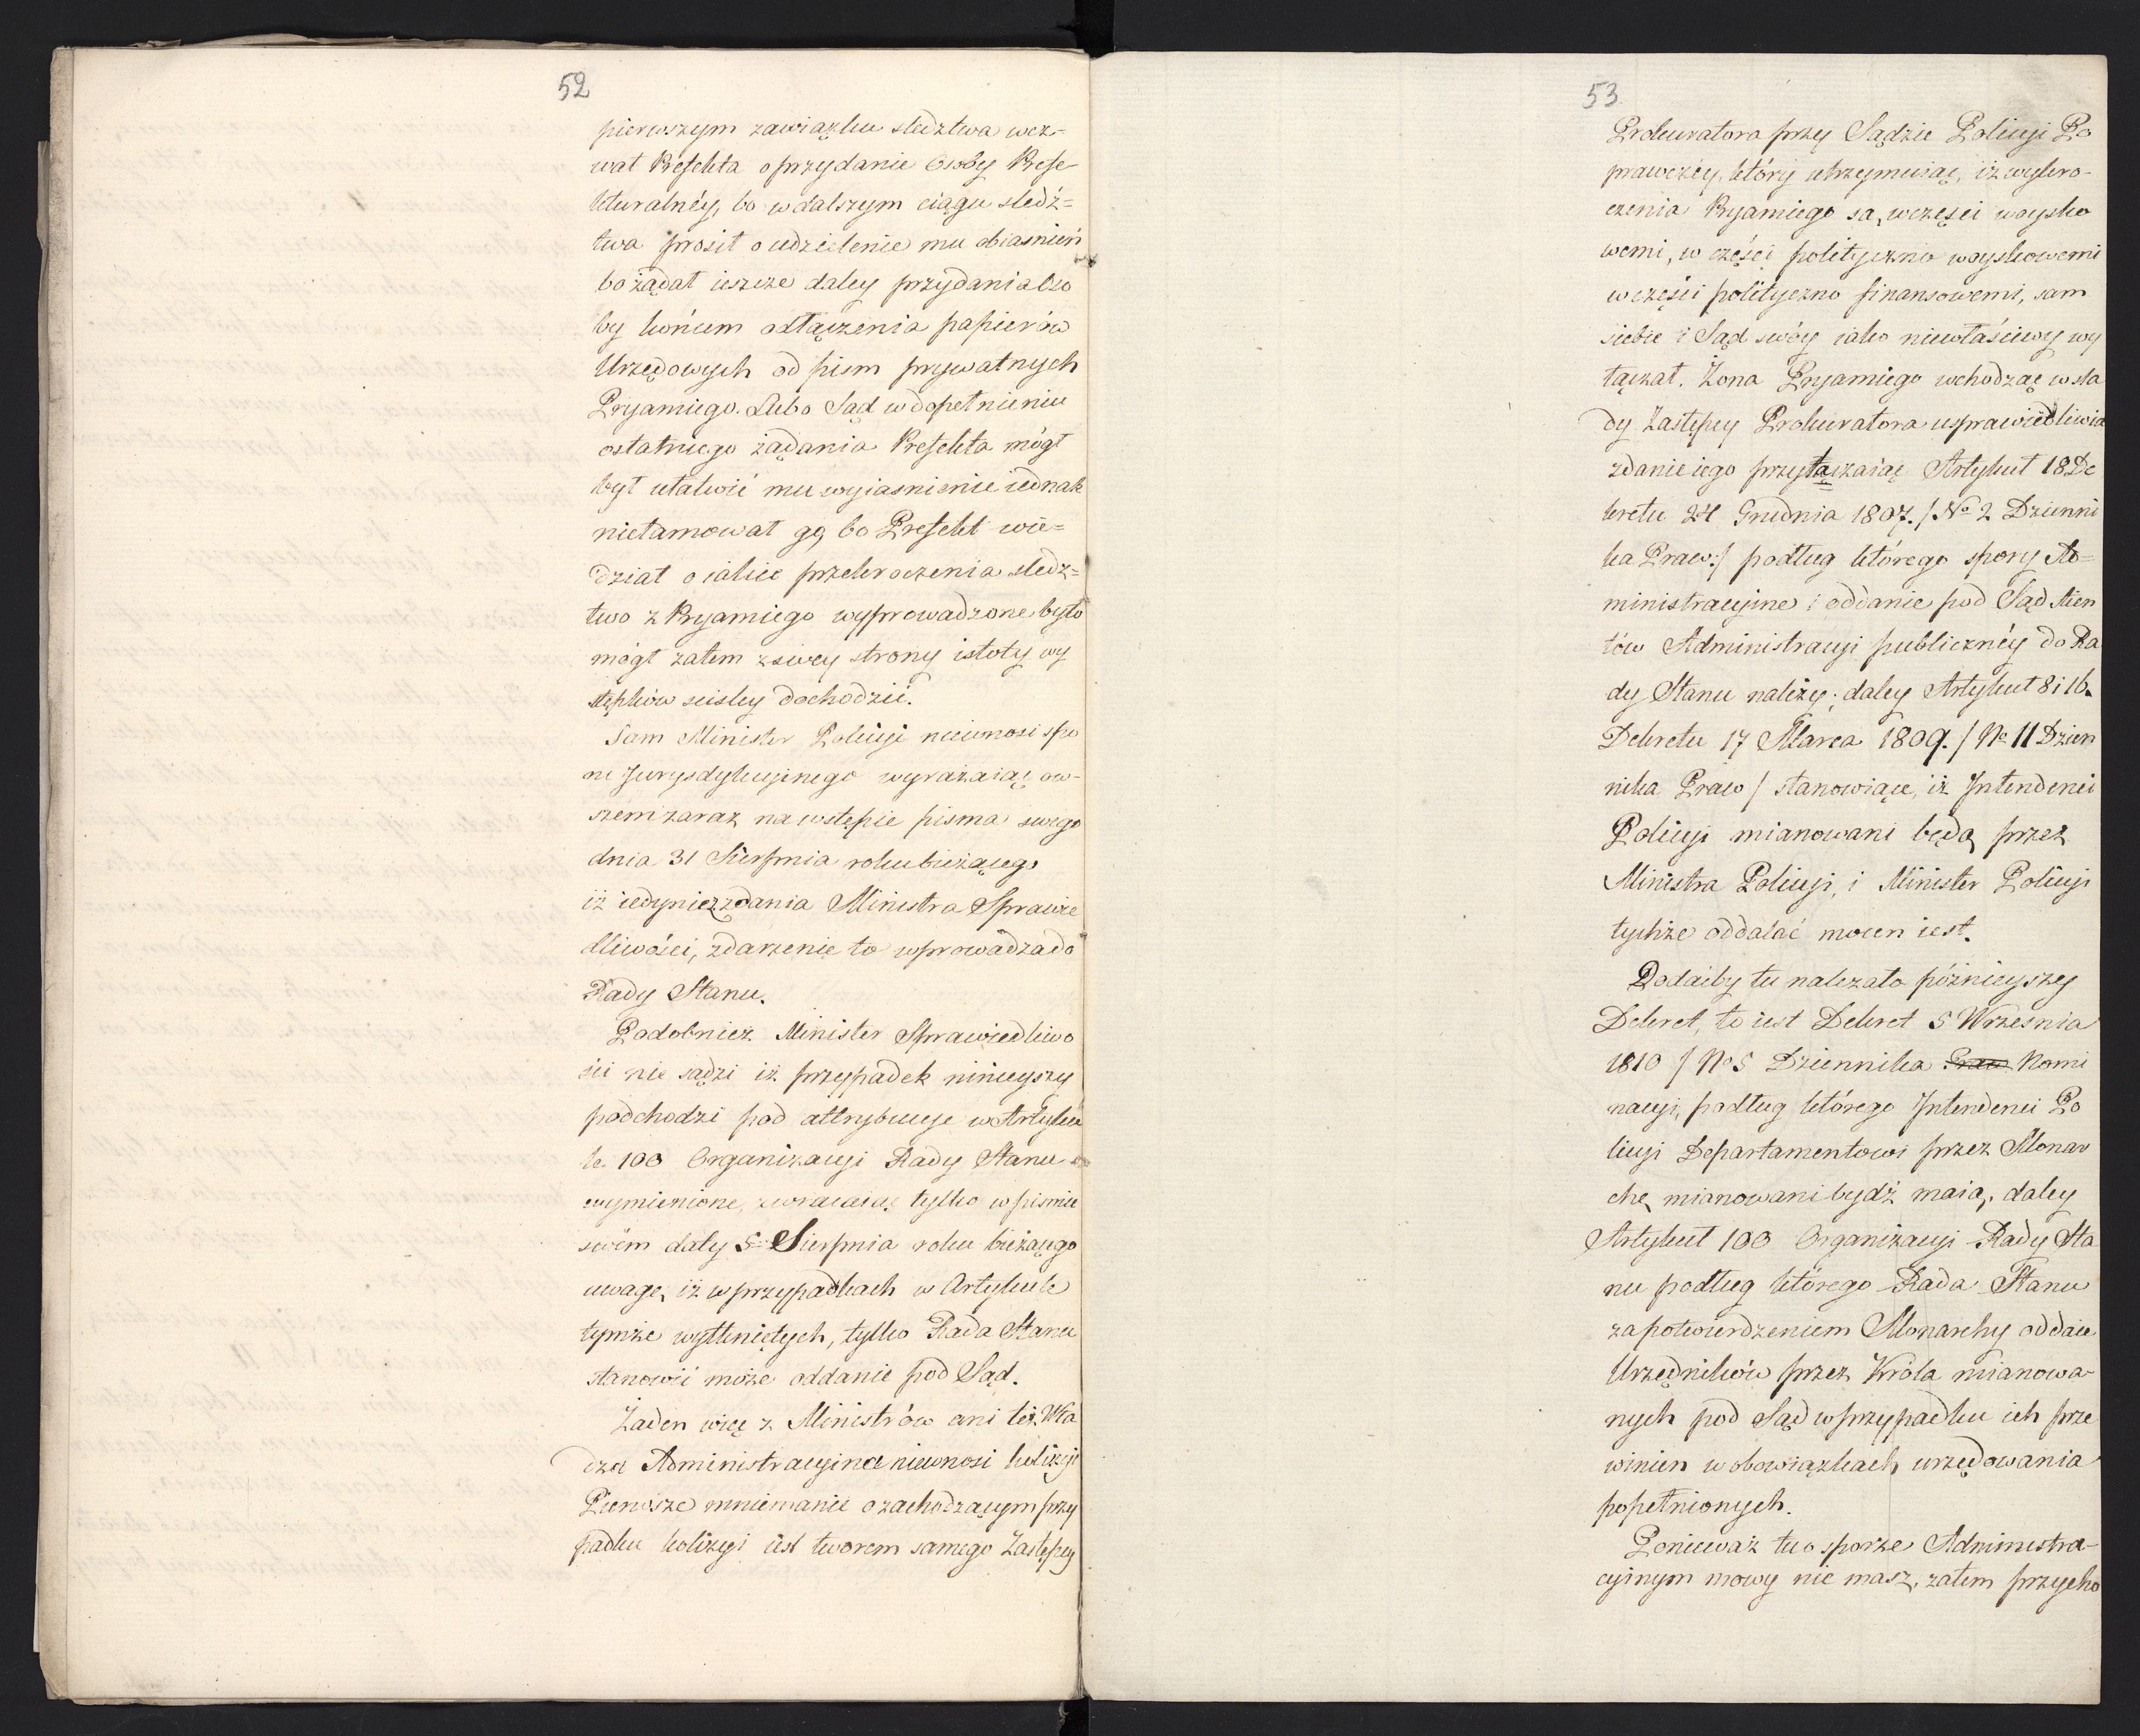 52
pierwszym zawiązku sledztwa wez=
wał Prefekta o przydanie Osoby Prefe
kturalnéy, bo w dalszym ciągu sledź=
twa prosił o udzielenie mu obiasnień
bo żądał ieszcze daley przydania Oso
by końcem odłączenia papierów
Urzędowych od pism prywatnych
Pryamiego. Lubo Sąd w dopełnieniu
ostatniego żądania Prefekta mógł
był ułatwić mu wyiasnienie iednak
nietamował go, bo Prefekt wie=
dział o iakie przekroczenia sledz=
two z Pryamiego wyprowadzone było
mógł zatem z swey strony istoty wy
stępków scisley dochodzić.
Sam Minister Policyi niewnosi spo
ru Jurysdykcyinego wyrażaiąc ow-
szem zaraz na wstępie pisma swego
dnia 31 Sierpnia roku bieżącego
iż iedynie z zdania Ministra Sprawie
dliwości, zdarzenie to wprowadza do
Rady Stanu.
Podobnież Minister Sprawiedliwo
ści nie sądzi iż przypadek ninieyszy
podchodzi pod attrybucye w Artyku
le 100 Organizacyi Rady Stanu
wymienione, zwracaiąc tylko w pismie
swém daty 5 Sierpnia roku bieżącego
uwagę, iż w przypadkach w Artykule
tymże wytkniętych, tylko Rada Stanu
stanowić może oddanie pod Sąd.
Żaden więc z Ministrów ani też Wła
dza Administracyina niewnosi kolizyi
Pierwsze mniemanie o zachodzącym przy
padku kolizyi iest tworem samego Zastępcy
53
Prokuratora przy Sądzie Policyi Po
prawczéy, który utrzymuiąc, iż wykro-
czenia Pryamiego są, w części woysko
wemi, w części polityczno woyskowemi
w części polityczno finansowemi, sam
siebie i Sąd swóy iako niewłaściwy wy
łączał. Żona Pryamiego wchodząc w śla
dy Zastępcy Prokuratora usprawiedliwia
zdanie iego przytaczaiąc Artykuł 18 De
kretu 24 Grudnia 1807. / No 2 Dzienni
ka Praw:/ podług którego spory Ad=
ministracyine i oddanie pod Sąd Aien
tów Administracyi publicznéy do Ra
dy Stanu należy; daley Artykuł 8 i 16.
Dekretu 17 Marca 1809. / No 11 Dzien
nika Praw / stanowiące, iż Intendenci
Policyi mianowani będą przez
Ministra Policyi, i Minister Policyi
tychże oddalać mocen iest.
Dodaćby tu należało późnieyszy
Dekret, to iest Dekret 5 Września
1810 / No 5 Dziennika Praw Nomi
nacyi, podług którego Intendenci Po
licyi Departamentowi przez Monar
chę mianowani bydź maią, daley
Artykuł 100 Organizacyi Rady Sta
nu podług którego Rada Stanu
za potwierdzeniem Monarchy oddaie
Urzędników przez Króla mianowa-
nych pod Sąd w przypadku ich prze
winien w obowiązkach urzędowania
popełnionych.
Ponieważ tu o sporze Administra-
cyinym mowy nie masz, zatem przycho